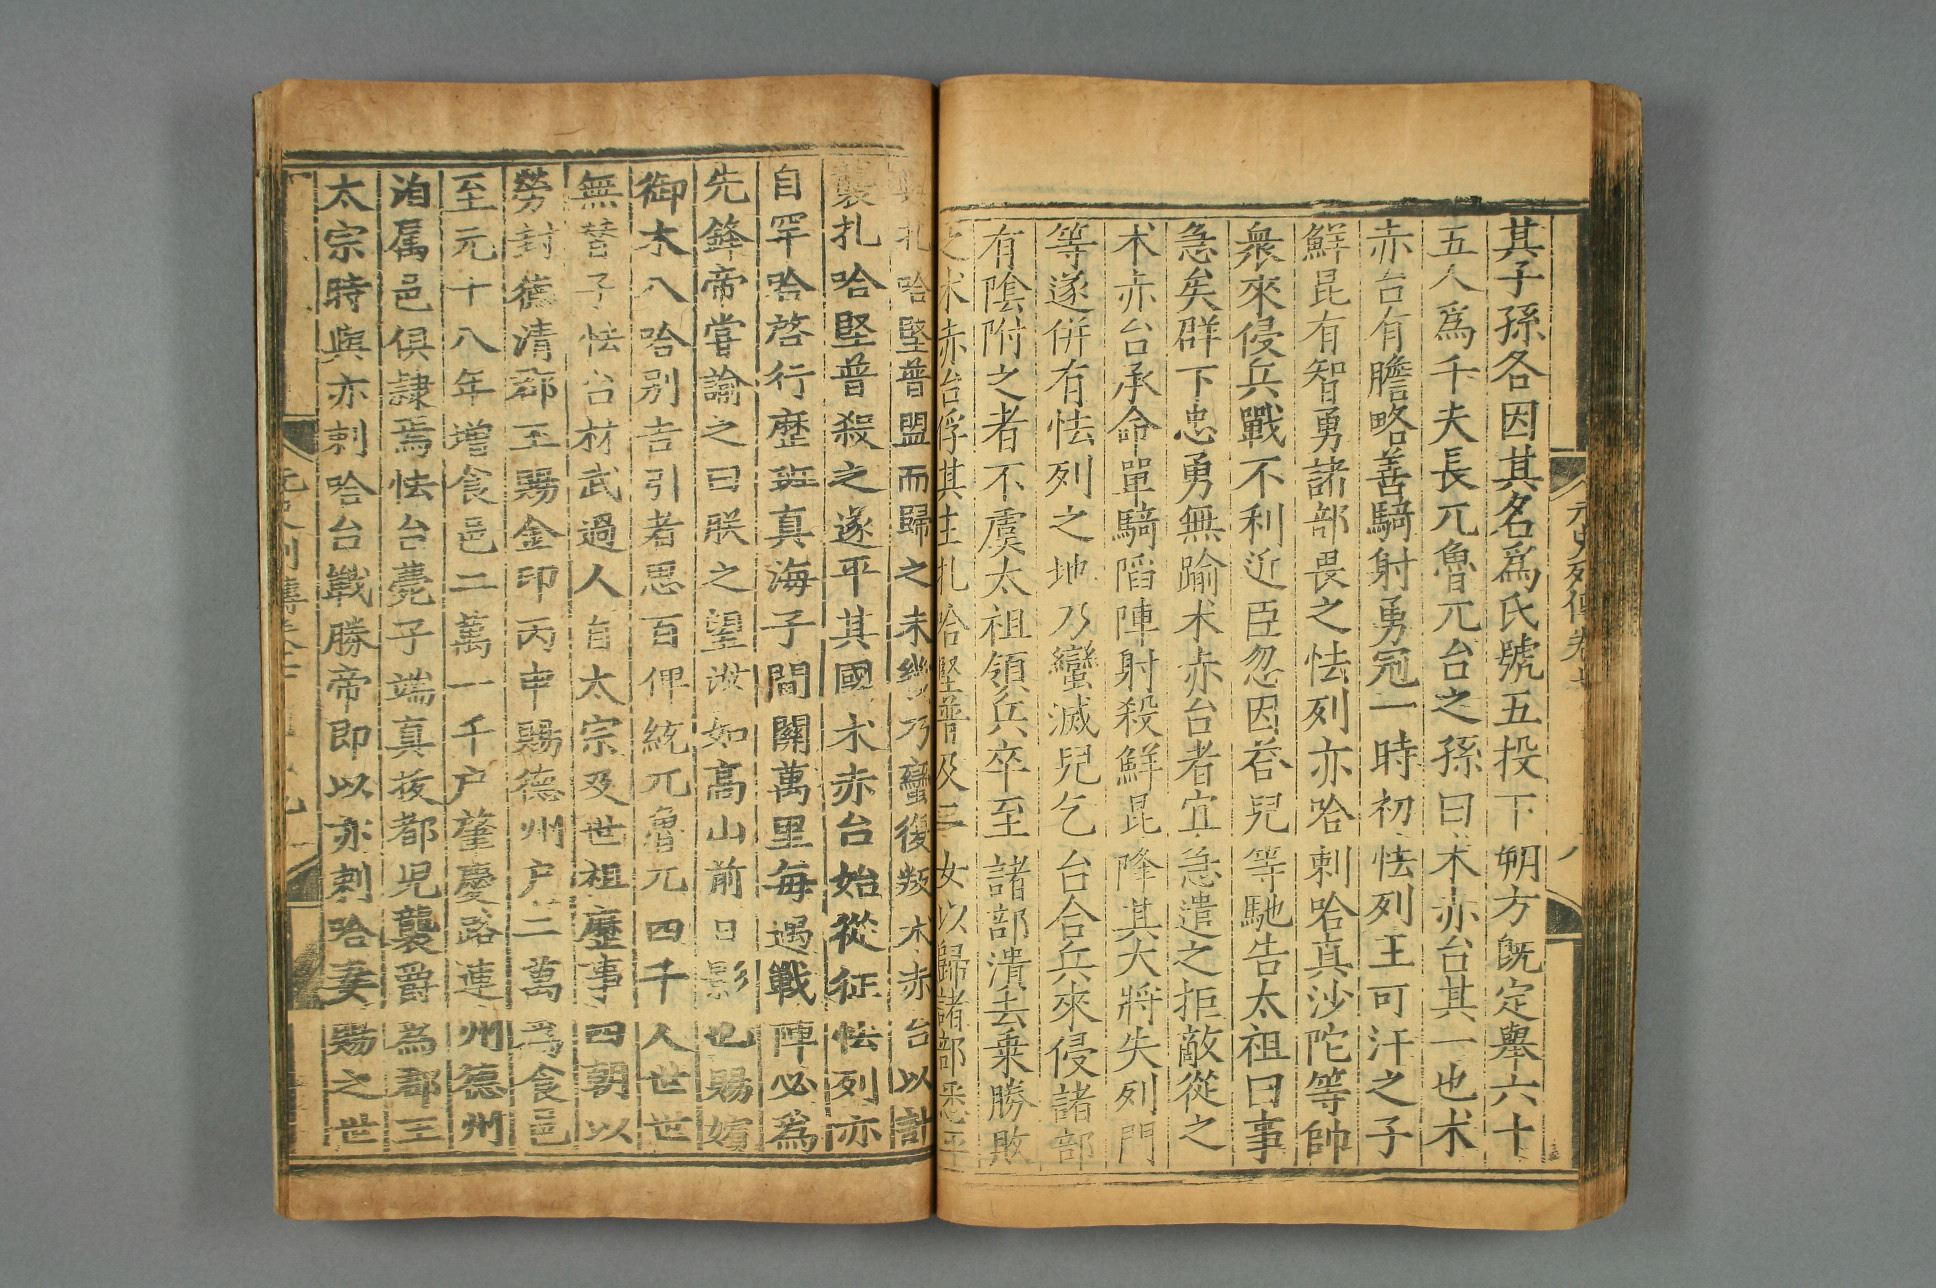 元史列傳卷七
八
其子孫各因其名爲氏號五投下朔方既定舉六十
五人爲千夫長兀魯兀台之孫曰术赤台其一也术
赤台有膽略善騎射勇冠一時初怯列王可汗之子
鮮昆有智勇諸部畏之怯列亦哈剌哈真沙陀等帥
衆來侵兵戰不利近臣忽因荅兒等馳告太祖曰事
急矣群下忠勇無踰术赤台者宜急遣之拒敵從之
术赤台承命單騎陷陣射殺鮮昆降其大將失列門
等遂併有怯列之地乃蠻滅兒乞台合兵來侵諸部
有陰附之者不虞太祖領兵卒至諸部潰去乗勝敗
之术赤台俘其主札哈堅普及二女以歸諸部悉平
與札哈堅普盟而歸之未幾乃蠻復叛术赤台以計
襲扎哈堅普殺之遂平其國术赤台始從征怯列亦
自罕哈啓行歷班真海子間關萬里每遇戰陣必爲
先鋒帝嘗諭之曰朕之望汝如高山前日影也賜嬪
御木八哈别吉引者思百俾統兀魯兀四千人世世
無替子怯台材武過人自太宗及世祖歷事四朝以
勞封德清郡王賜金印丙申賜德州户二萬爲食邑
至元十八年增食邑二萬一千户肇慶路連州德州
洎属邑俱隷焉怯台薨子端真拔都児襲爵爲郡王
太宗時與亦剌哈台戰勝帝即以亦剌哈妻賜之世